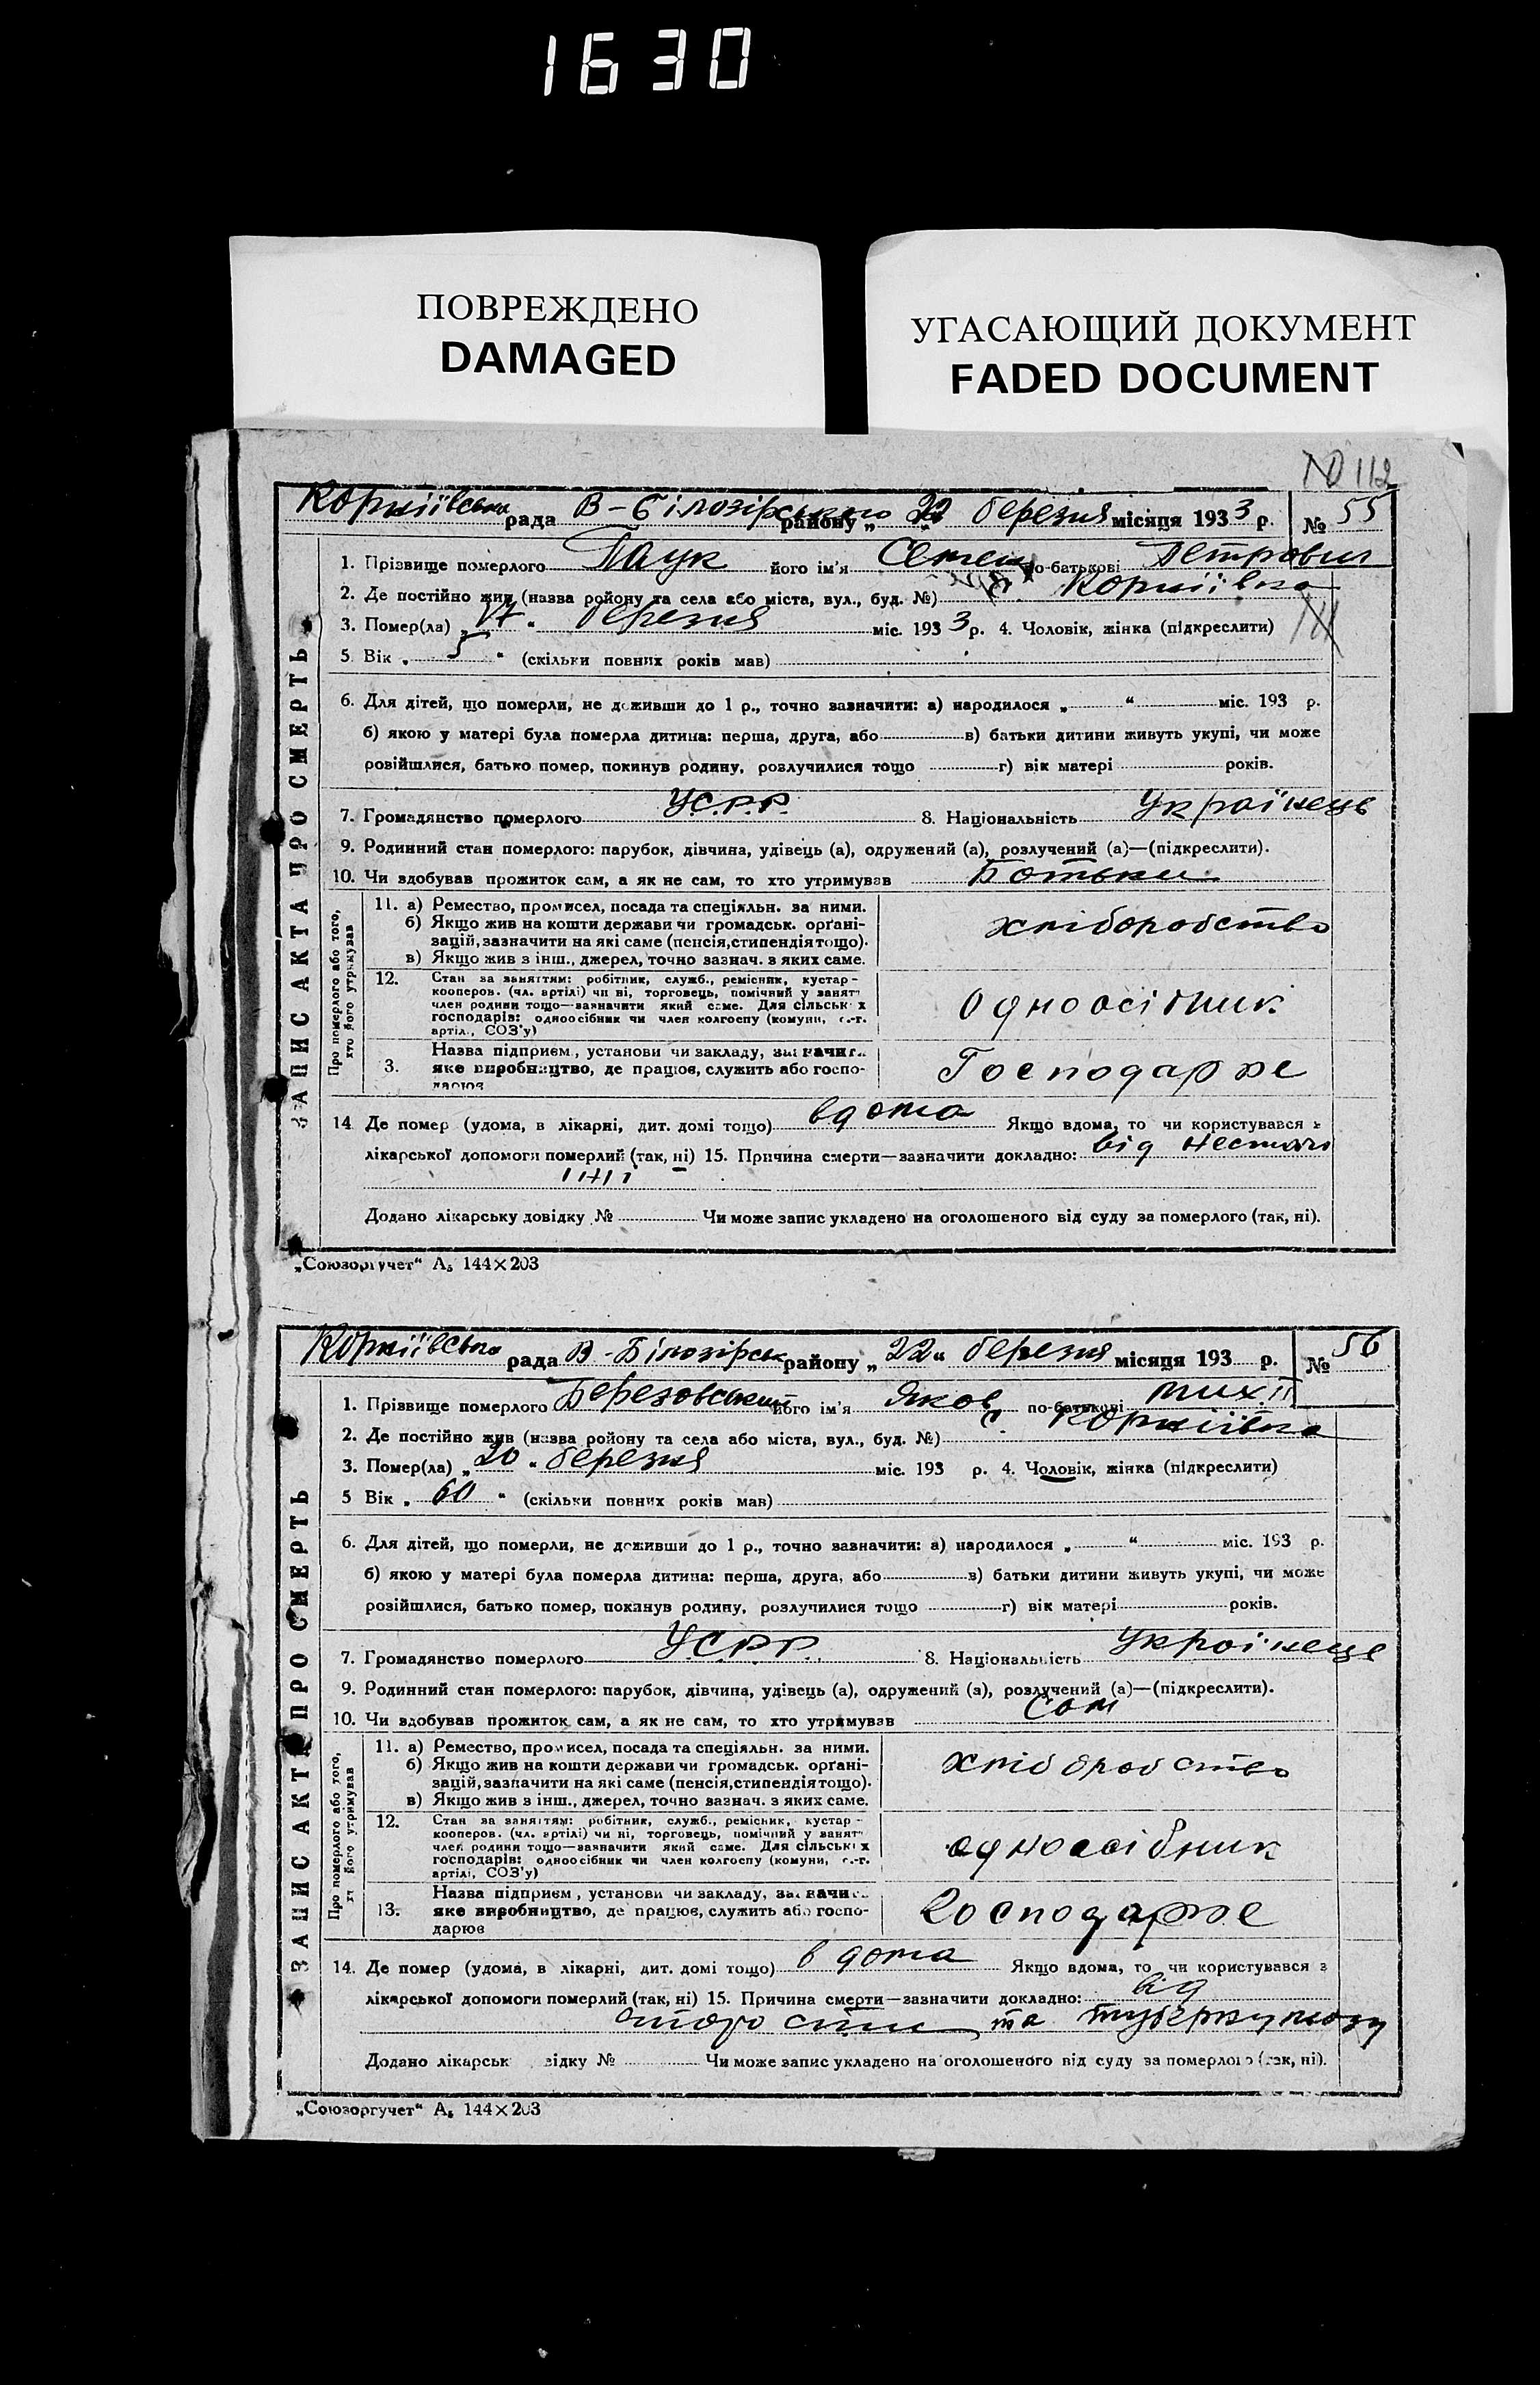 1630
ПОВРЕЖДЕНО
DAMAGED
УГАСАЮЩИЙ ДОКУМЕНТ
FADED DOCUMENT
112
Корніївська рада В-Білозірського району „22" березня місяця 1933 р. № 55
ЗАПИС АКТА ПРО СМЕРТЬ
1. Прізвище померлого Паук його ім'я Семен по-батькові Петрович
2. Де постійно жив (назва району та села або міста, вул., буд. №) с. Корніївка
3. Помер(ла) „17" березня міс. 1933 р. 4. Чоловік, жінка (підкреслити)
5. Вік „5" (скільки повних років мав)
6. Для дітей, що померли, не доживши до 1 р., точно зазначити: а) народилося „ " міс. 193 р.
б) якою у матері була померла дитина: перша, друга, або в) батьки дитини живуть укупі, чи може
розійшлися, батько помер, покинув родину, розлучилися тощо г) вік матері років.
7. Громадянство померлого У.С.Р.Р. 8. Національність Українець
9. Родинний стан померлого: парубок, дівчина, удівець (а), одружений (а), розлучений (а)—(підкреслити).
10. Чи здобував прожиток сам, а як не сам, то хто утримував Батьки
Про померлого або того, хто його утримував
11. а) Ремество, промисел, посада та спеціяльн. за ними.
б) Якщо жив на кошти держави чи громадськ. органі-
зацій, зазначити на які саме (пенсія, стипендія тощо).
в) Якщо жив з інш., джерел, точно зазнач. з яких саме.
хліборобство
12. Стан за заняттям: робітник, служб., ремісник, кустар-
кооперов. (чл. артілі) чи ні, торговець, помічний у занятт
член родини тощо—зазначити який саме. Для сільськ х
господарів: одноосібник чи член колгоспу (комуни, с.-г.
артіл., СОЗ'у)
одноосібник
3. Назва підприєм., установи чи закладу, зазначит.
яке виробництво, де працює, служить або госпо-
дарює
Господарює
14. Де помер (удома, в лікарні, дит. домі тощо) вдома Якщо вдома, то чи користувався з
лікарської допомоги померлий (так, ні) 15. Причина смерти—зазначити докладно: від нестачі
їжі
Додано лікарську довідку № Чи може запис укладено на оголошеного від суду за померлого (так, ні).
„Союзоргучет" А₅ 144×203
Корніївська рада В-Білозірськ району „22" березня місяця 193 р. № 56
ЗАПИС АКТА ПРО СМЕРТЬ
1. Прізвище померлого Березовський його ім'я Яков по-батькові
2. Де постійно жив (назва району та села або міста, вул., буд. №) с. Корніївка
3. Помер(ла) „20" березня міс. 193 р. 4. Чоловік, жінка (підкреслити)
5 Вік „60" (скільки повних років мав)
6. Для дітей, що померли, не доживши до 1 р., точно зазначити: а) народилося „ " міс. 193 р.
б) якою у матері була померла дитина: перша, друга, або в) батьки дитини живуть укупі, чи може
розійшлися, батько помер, покинув родину, розлучилися тощо г) вік матері років.
7. Громадянство померлого У.С.Р.Р. 8. Національність Українець
9. Родинний стан померлого: парубок, дівчина, удівець (а), одружений (а), розлучений (а)—(підкреслити).
10. Чи здобував прожиток сам, а як не сам, то хто утримував Сам
Про померлого або того, хт його утримував
11. а) Ремество, промисел, посада та спеціяльн. за ними.
б) Якщо жив на кошти держави чи громадськ. органі-
зацій, зазначити на які саме (пенсія, стипендія тощо).
в) Якщо жив з інш., джерел, точно зазнач. з яких саме.
хліборобство
12. Стан за заняттям: робітник, служб., ремісник, кустар-
кооперов. (чл. артілі) чи ні, торговець, помічний у занятт
член родини тощо—зазначити який саме. Для сільськ х
господарів: одноосібник чи член колгоспу (комуни, с.-г.
артілі, СОЗ'у)
одноосібник
13. Назва підприєм., установи чи закладу, зазначит.
яке виробництво, де працює, служить або госпо-
дарює
Господарює
14. Де помер (удома, в лікарні, дит. домі тощо) в дома Якщо вдома, то чи користувався з
лікарської допомоги померлий (так, ні) 15. Причина смерти—зазначити докладно: від
старости та туберкульозу
Додано лікарськ відку № Чи може запис укладено на оголошеного від суду за померлого (так, ні).
„Союзоргучет" А₅ 144×203